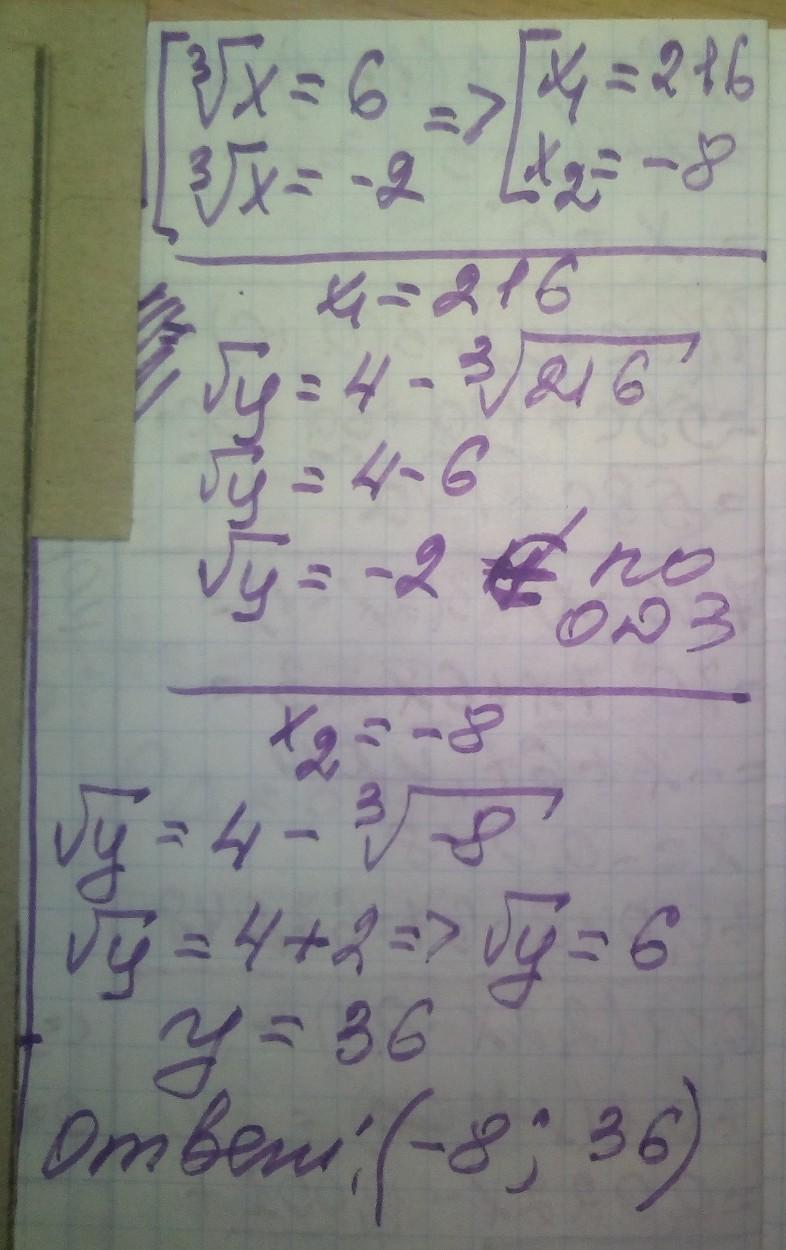 [∛x = 6 => [x₁ = 216
[∛x = -2 [x₂ = -8
x₁ = 216
√y = 4 - ∛216
√y = 4 - 6
√y = -2 ∉ по
ОДЗ
x₂ = -8
√y = 4 - ∛-8
√y = 4 + 2 => √y = 6
y = 36
Ответ: (-8; 36)